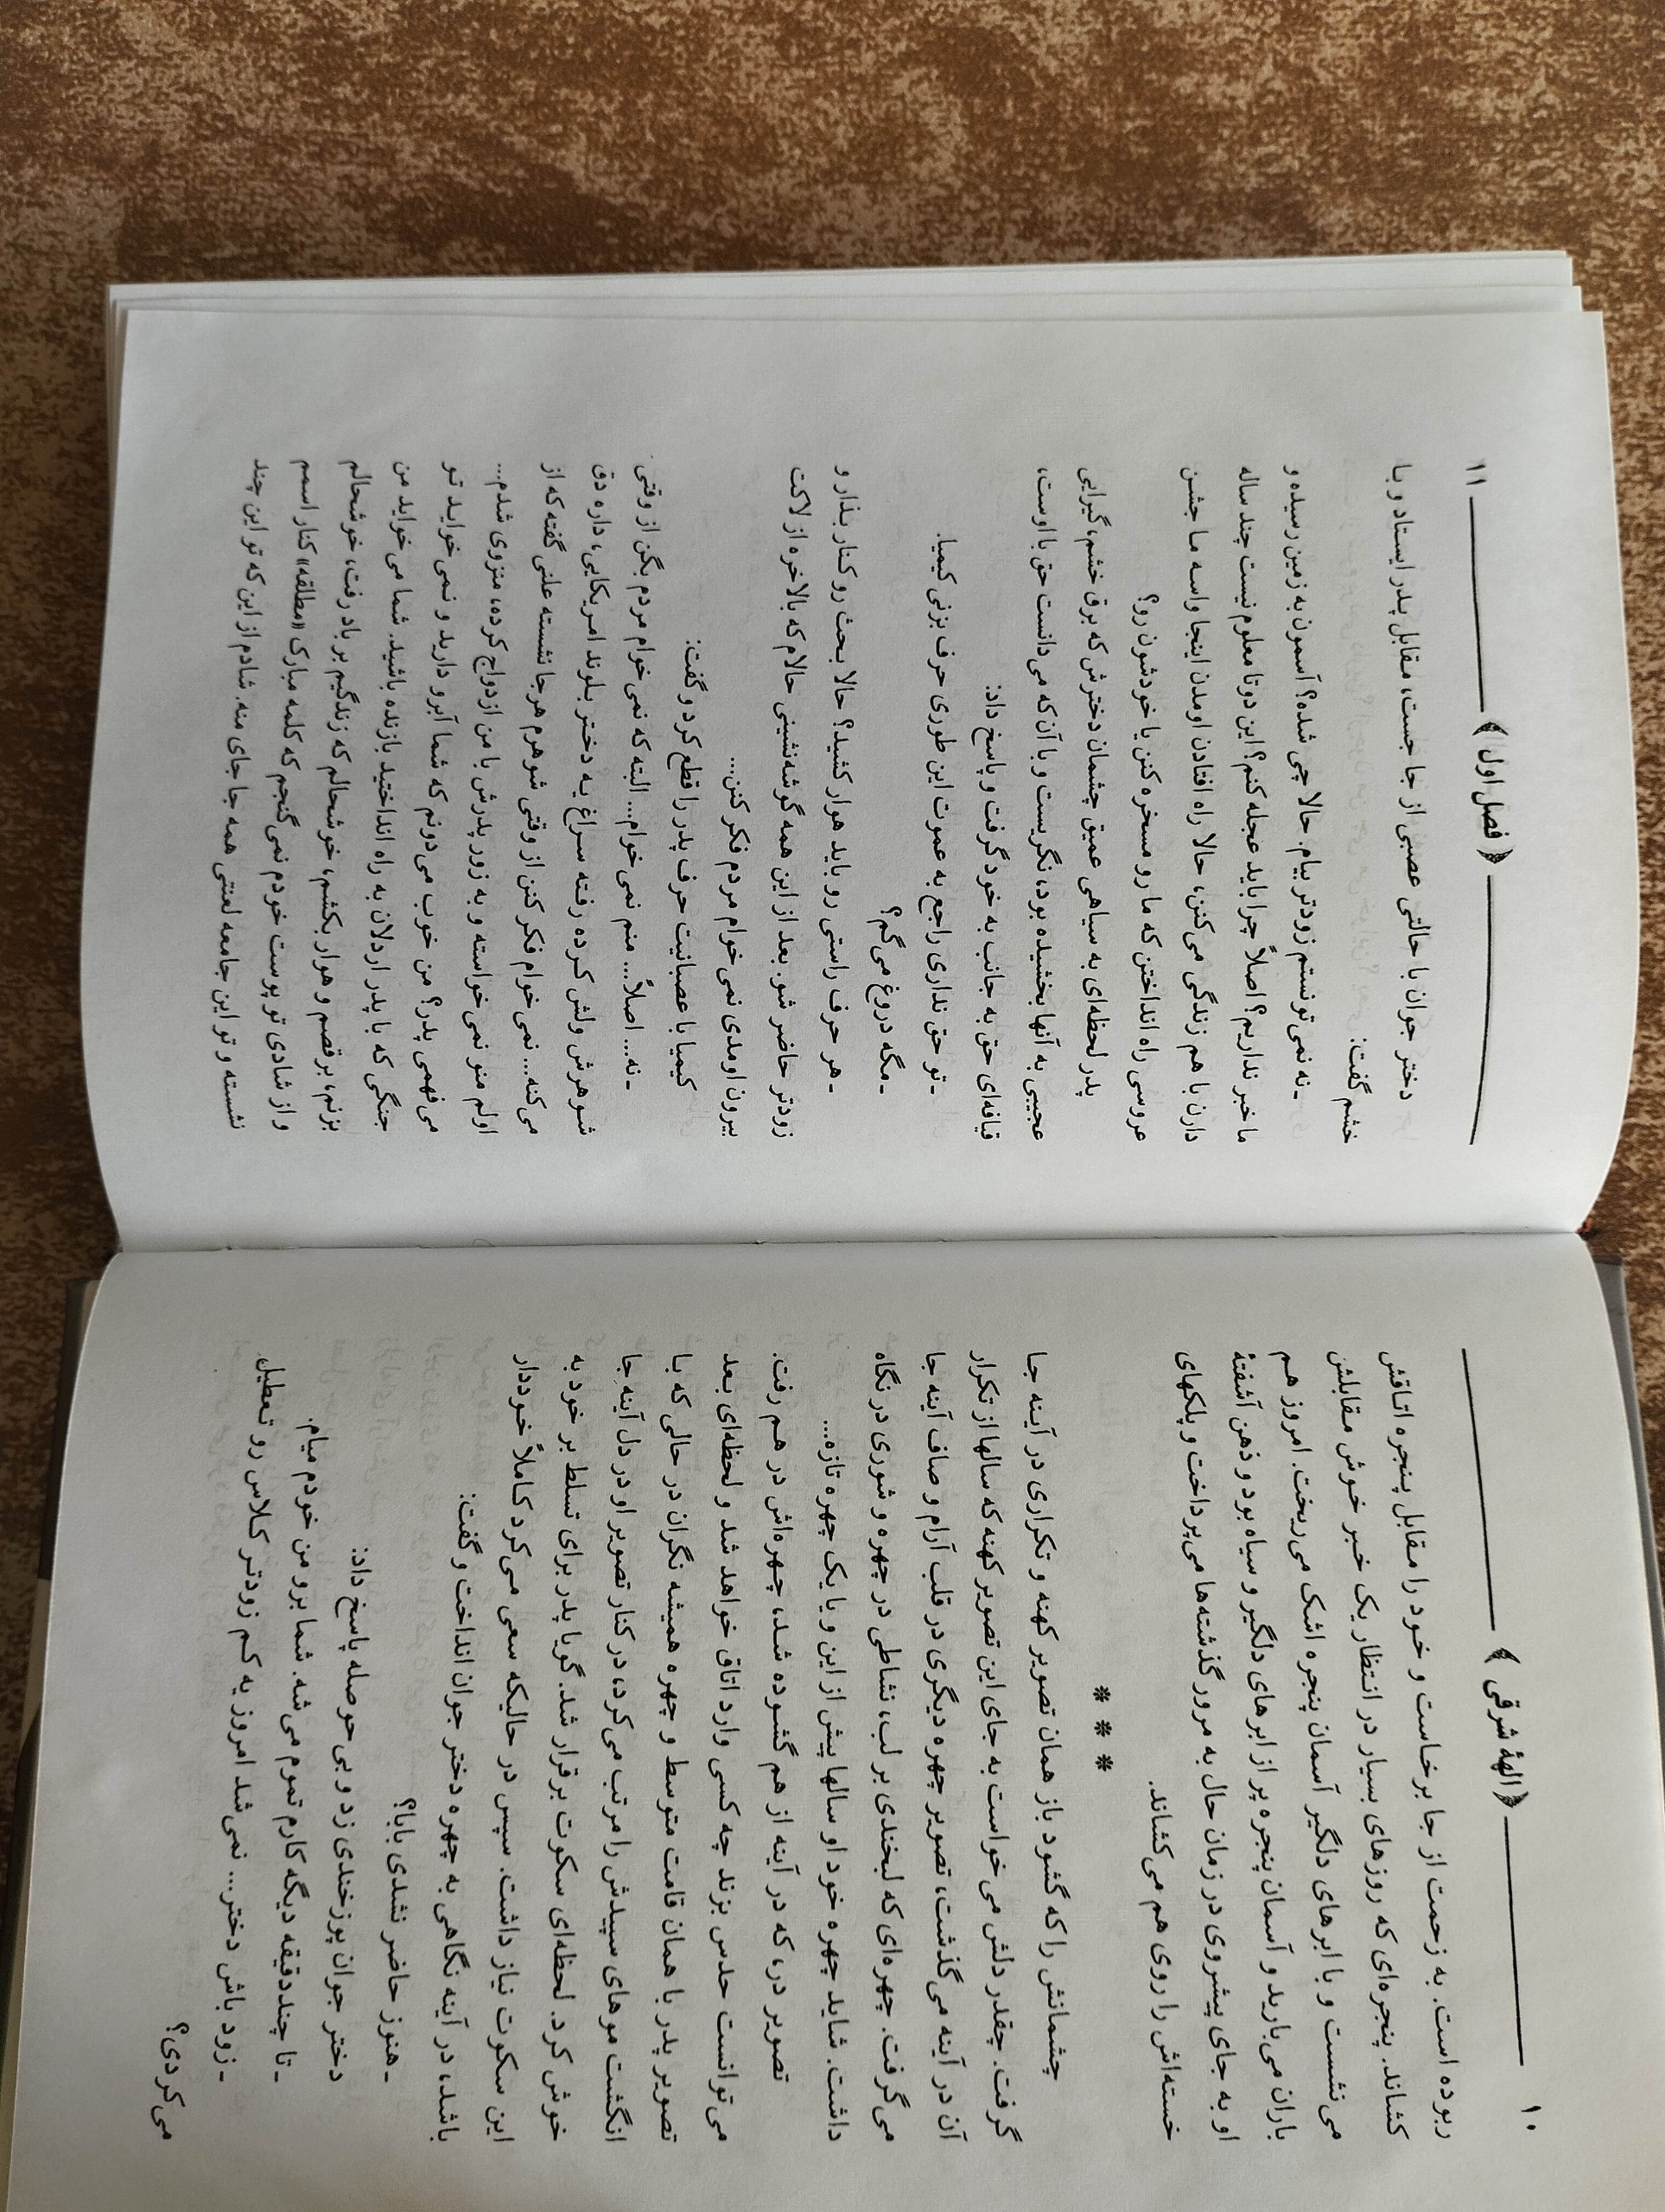 ۱۰ الههٔ شرقی
ربوده است. به زحمت از جا برخاست و خود را مقابل پنجره اتاقش
کشاند. پنجره‌ای که روزهای بسیار در انتظار یک خبر خوش مقابلش
می‌نشست و با ابرهای دلگیر آسمان پنجره اشک می‌ریخت. امروز هم
باران می‌بارید و آسمان پنجره پر از ابرهای دلگیر و سیاه بود و ذهن آشفتهٔ
او به جای پیشروی در زمان حال به مرور گذشته‌ها می‌پرداخت و پلکهای
خسته‌اش را روی هم می‌کشاند.
* * *
چشمانش را که گشود باز همان تصویر کهنه و تکراری در آینه جا
گرفت. چقدر دلش می‌خواست به جای این تصویر کهنه که سالها از تکرار
آن در آینه می‌گذشت، تصویر چهره دیگری در قلب آرام و صاف آینه جا
می‌گرفت. چهره‌ای که لبخندی بر لب، نشاطی در چهره و شوری در نگاه
داشت. شاید چهره خود او سالها پیش از این و یا یک چهره تازه...
تصویر در، که در آینه از هم گشوده شد، چهره‌اش در هم رفت.
می‌توانست حدس بزند چه کسی وارد اتاق خواهد شد و لحظه‌ای بعد
تصویر پدر با همان قامت متوسط و چهره همیشه نگران در حالی که با
انگشت موهای سپیدش را مرتب می‌کرد، در کنار تصویر او در دل آینه جا
خوش کرد. لحظه‌ای سکوت برقرار شد. گویا پدر برای تسلط بر خود به
این سکوت نیاز داشت. سپس در حالیکه سعی می‌کرد کاملاً خوددار
باشد، در آینه نگاهی به چهره دختر جوان انداخت و گفت:
- هنوز حاضر نشدی بابا؟
دختر جوان پوزخندی زد و بی حوصله پاسخ داد:
- تا چند دقیقه دیگه کارم تموم می‌شه. شما برو من خودم میام.
- زود باش دختر... نمی‌شد امروز یه کم زودتر کلاس رو تعطیل
می‌کردی؟
فصل اول ۱۱
دختر جوان با حالتی عصبی از جا جست، مقابل پدر ایستاد و با
خشم گفت:
- نه نمی‌تونستم زودتر بیام. حالا چی شده؟ آسمون به زمین رسیده و
ما خبر نداریم؟ اصلاً چرا باید عجله کنم؟ این دوتا معلوم نیست چند ساله
دارن با هم زندگی می‌کنن، حالا راه افتادن اومدن اینجا واسه ما جشن
عروسی راه انداختن که ما رو مسخره کنن یا خودشون رو؟
پدر لحظه‌ای به سیاهی عمیق چشمان دخترش که برق خشم، گیرایی
عجیبی به آنها بخشیده بود، نگریست و با آن که می‌دانست حق با اوست،
قیافه‌ای حق به جانب به خود گرفت و پاسخ داد:
- تو حق نداری راجع به عموت این طوری حرف بزنی کیمیا.
- مگه دروغ می‌گم؟
- هر حرف راستی رو باید هوار کشید؟ حالا بحث رو کنار بذار و
زودتر حاضر شو. بعد از این همه گوشه‌نشینی حالام که بالاخره از لاکت
بیرون اومدی نمی‌خوام مردم فکر کنن...
کیمیا با عصبانیت حرف پدر را قطع کرد و گفت:
- نه... اصلاً... منم نمی‌خوام... البته که نمی‌خوام مردم بگن از وقتی
شوهرش ولش کرده رفته سراغ یه دختر بلوند امریکایی، داره دق
می‌کنه... نمی‌خوام فکر کنن از وقتی شوهرم هرجا نشسته علنی گفته که از
اولم منو نمی‌خواسته و به زور پدرش با من ازدواج کرده، منزوی شدم...
می‌فهمی پدر؟ من خوب می‌دونم که شما آبرو دارید و نمی‌خواید تو
جنگی که با پدر اردلان به راه انداختید بازنده باشید. شما می‌خواید من
بزنم، برقصم و هوار بکشم، خوشحالم که زندگیم بر باد رفت، خوشحالم
و از شادی تو پوست خودم نمی‌گنجم که کلمه مبارک «مطلقه» کنار اسمم
نشسته و تو این جامعه لعنتی همه جا جای منه. شادم از این که تو این چند